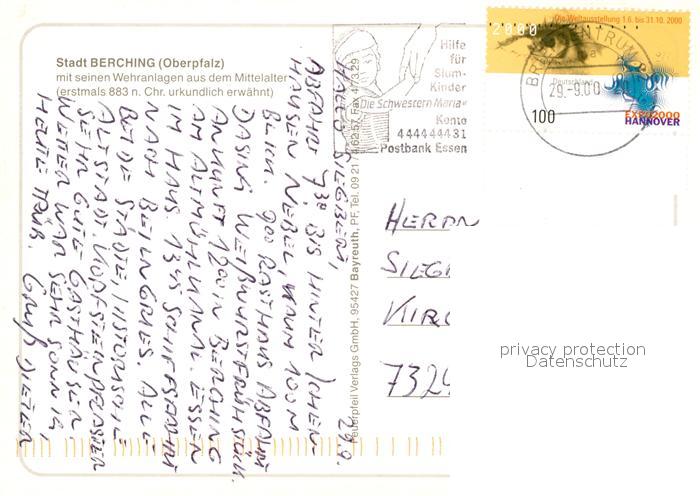 Stadt BERCHING (Oberpfalz)
mit seinen Wehranlagen aus dem Mittelalter
(erstmals 883 n. Chr. urkundlich erwähnt)
Die Weltausstellung 1.6. bis 31.10. 2000
2000
Deutschland
100
EXPO2000
HANNOVER
ZENTRUM
29.-9.00
Hilfe
für
Slum-
Kinder
"Die Schwestern Maria"
Konto
444444431
Postbank Essen
Feuerpfeil Verlags GmbH, 95427 Bayreuth, PF, Tel. 09 21/4 62 57, Fax 473 29
29.9.
HALLO SIEGBERT,
ABFAHRT 7 30 BIS HINTER ICHEN-
HAUSEN NEBEL, KAUM 100 M
BLICK. 900 RASTHAUS ABFAHRT
DASING WEIßWURSTFRÜHSTÜCK.
ANKUNFT 1200 IN BERCHING
AM ALTMÜHLKANAL. ESSEN
IM HAUS. 13 45 SCHIFFSFAHRT
NACH BEILNGRIES. ALLE
BEIDE STÄDTE, HISTORISCHE
ALTSTADT KOPFSTEINPFLASTER
SEHR GUTE GASTHÄUSER.
WETTER WAR SEHR SONNIG,
HEUTE TRÜB. GRUß DIETER
HERRN
SIEG
KIRC
732
privacy protection
Datenschutz